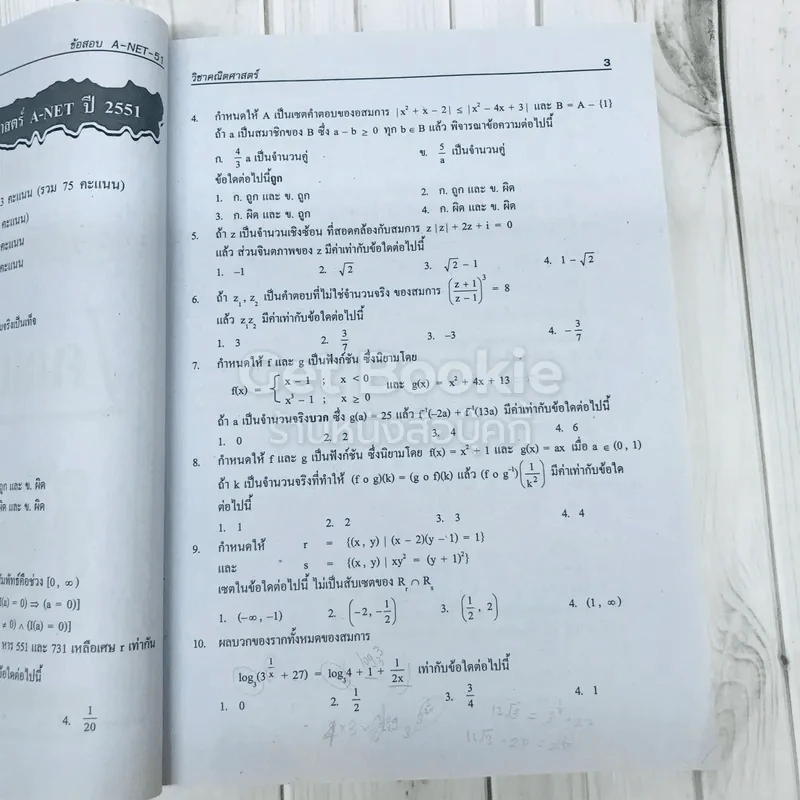 ข้อสอบ A-NET-51
าสตร์ A-NET ปี 2551
3 คะแนน (รวม 75 คะแนน)
คะแนน)
คะแนน
คะแนน
ถูก และ ข. ผิด
ผิด และ ข. ผิด
มพัทธ์คือช่วง [0, ∞)
(a) = 0) ⇒ (a = 0)]
≠ 0) ∧ (I(a) = 0)]
หาร 551 และ 731 เหลือเศษ r เท่ากัน
ข้อใดต่อไปนี้
4. 1/20
วิชาคณิตศาสตร์ 3
4. กำหนดให้ A เป็นเซตคำตอบของอสมการ |x² + x − 2| ≤ |x² − 4x + 3| และ B = A − {1}
ถ้า a เป็นสมาชิกของ B ซึ่ง a − b ≥ 0 ทุก b ∈ B แล้ว พิจารณาข้อความต่อไปนี้
ก. 4/3 a เป็นจำนวนคู่ ข. 5/a เป็นจำนวนคู่
ข้อใดต่อไปนี้ถูก
1. ก. ถูก และ ข. ถูก 2. ก. ถูก และ ข. ผิด
3. ก. ผิด และ ข. ถูก 4. ก. ผิด และ ข. ผิด
5. ถ้า z เป็นจำนวนเชิงซ้อน ที่สอดคล้องกับสมการ z|z| + 2z + i = 0
แล้ว ส่วนจินตภาพของ z มีค่าเท่ากับข้อใดต่อไปนี้
1. −1 2. √2 3. √2 − 1 4. 1 − √2
6. ถ้า z₁, z₂ เป็นคำตอบที่ไม่ใช่จำนวนจริง ของสมการ ((z + 1)/(z − 1))³ = 8
แล้ว z₁z₂ มีค่าเท่ากับข้อใดต่อไปนี้
1. 3 2. 3/7 3. −3 4. −3/7
7. กำหนดให้ f และ g เป็นฟังก์ชัน ซึ่งนิยามโดย
f(x) = { x − 1 ; x < 0 และ g(x) = x² + 4x + 13
x³ − 1 ; x ≥ 0
ถ้า a เป็นจำนวนจริงบวก ซึ่ง g(a) = 25 แล้ว f⁻¹(−2a) + f⁻¹(13a) มีค่าเท่ากับข้อใดต่อไปนี้
1. 0 2. 2 3. 4 4. 6
8. กำหนดให้ f และ g เป็นฟังก์ชัน ซึ่งนิยามโดย f(x) = x² + 1 และ g(x) = ax เมื่อ a ∈ (0, 1)
ถ้า k เป็นจำนวนจริงที่ทำให้ (f o g)(k) = (g o f)(k) แล้ว (f o g⁻¹)(1/k²) มีค่าเท่ากับข้อใด
ต่อไปนี้
1. 1 2. 2 3. 3 4. 4
9. กำหนดให้ r = {(x, y) | (x − 2)(y − 1) = 1}
และ s = {(x, y) | xy² = (y + 1)²}
เซตในข้อใดต่อไปนี้ ไม่เป็นสับเซตของ Rᵣ ∩ Rₛ
1. (−∞, −1) 2. (−2, −1/2) 3. (1/2, 2) 4. (1, ∞)
10. ผลบวกของรากทั้งหมดของสมการ
log₃(3^(1/x) + 27) = log₃4 + 1 + 1/2x เท่ากับข้อใดต่อไปนี้
1. 0 2. 1/2 3. 3/4 4. 1
Get Bookie
ร้านหนังสือบุ๊คกี้